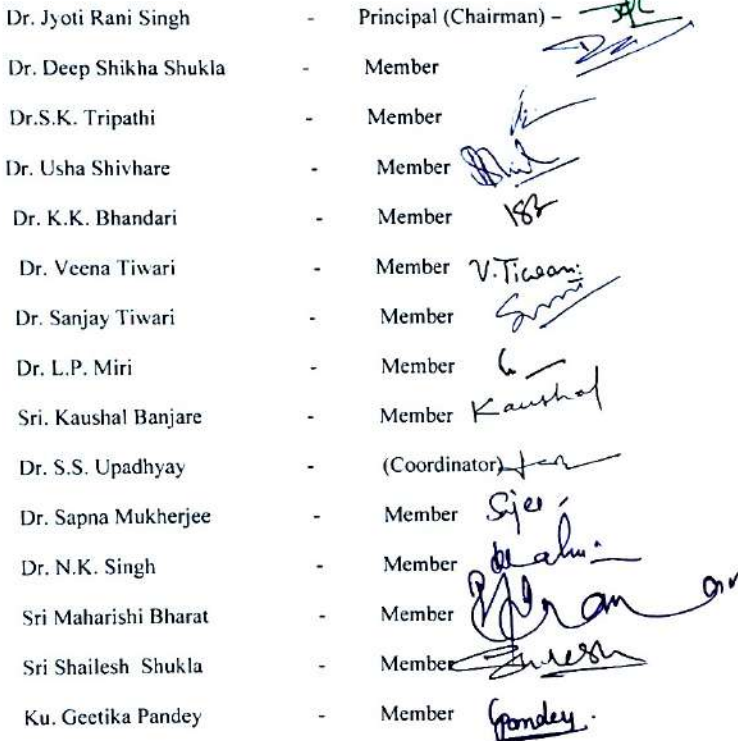 Dr. Jyoti Rani Singh - Principal (Chairman) –
Dr. Deep Shikha Shukla - Member
Dr.S.K. Tripathi - Member
Dr. Usha Shivhare - Member
Dr. K.K. Bhandari - Member
Dr. Veena Tiwari - Member V.Tiwari
Dr. Sanjay Tiwari - Member
Dr. L.P. Miri - Member
Sri. Kaushal Banjare - Member Kaushal
Dr. S.S. Upadhyay - (Coordinator)
Dr. Sapna Mukherjee - Member
Dr. N.K. Singh - Member
Sri Maharishi Bharat - Member
Sri Shailesh Shukla - Member
Ku. Geetika Pandey - Member Gpandey.